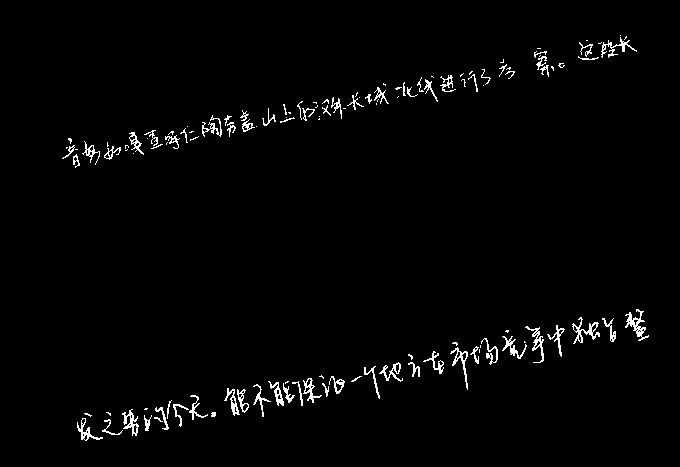 音如如嘎查呼仁陶勒盖山上的汉长城北线进行了考察。这段长
发之势的今天。能不能保证一个地方在市场竞争中独占鳌